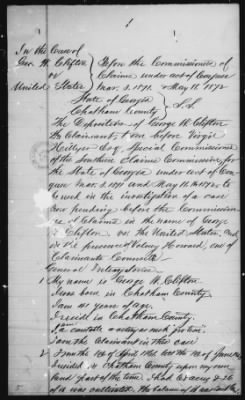 In the Case of
Geo. W. Clifton
vs
United States
Before the Commissioners of
Claims under act of Congress
Mar. 3. 1871. & May 11. 1872
State of Georgia
Chatham County S.S.
The Deposition of George W. Clifton
the Claimant, taken before Virgil
Hillyer Esq. Special Commissioner
of the Southern Claims Commission, for
the State of Georgia under act of Con-
gress Mar. 3. 1871 and May 11th 1872, to
be used in the investigation of a case
now pending before the Commission-
ers of Claims in the name of George
W. Clifton vs. The United States, and
in the presence of Volney Howard, one of
Claimants Counsel
General Interrogatories
1 My name is George W. Clifton
I was born in Chatham County
I am 41 years of age.
I reside in Chatham County.
I am the Claimant in this case
2 From the 1st of April 1861 to the 1st of June 1865
I resided in Chatham County upon my own
land part of the time. I had 60 acres & 20
of it was cultivated. The balance of the